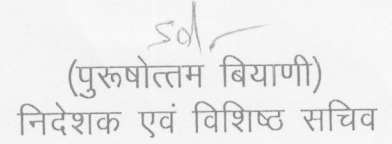 sd/-
(पुरूषोत्तम बियाणी)
निदेशक एवं विशिष्ठ सचिव